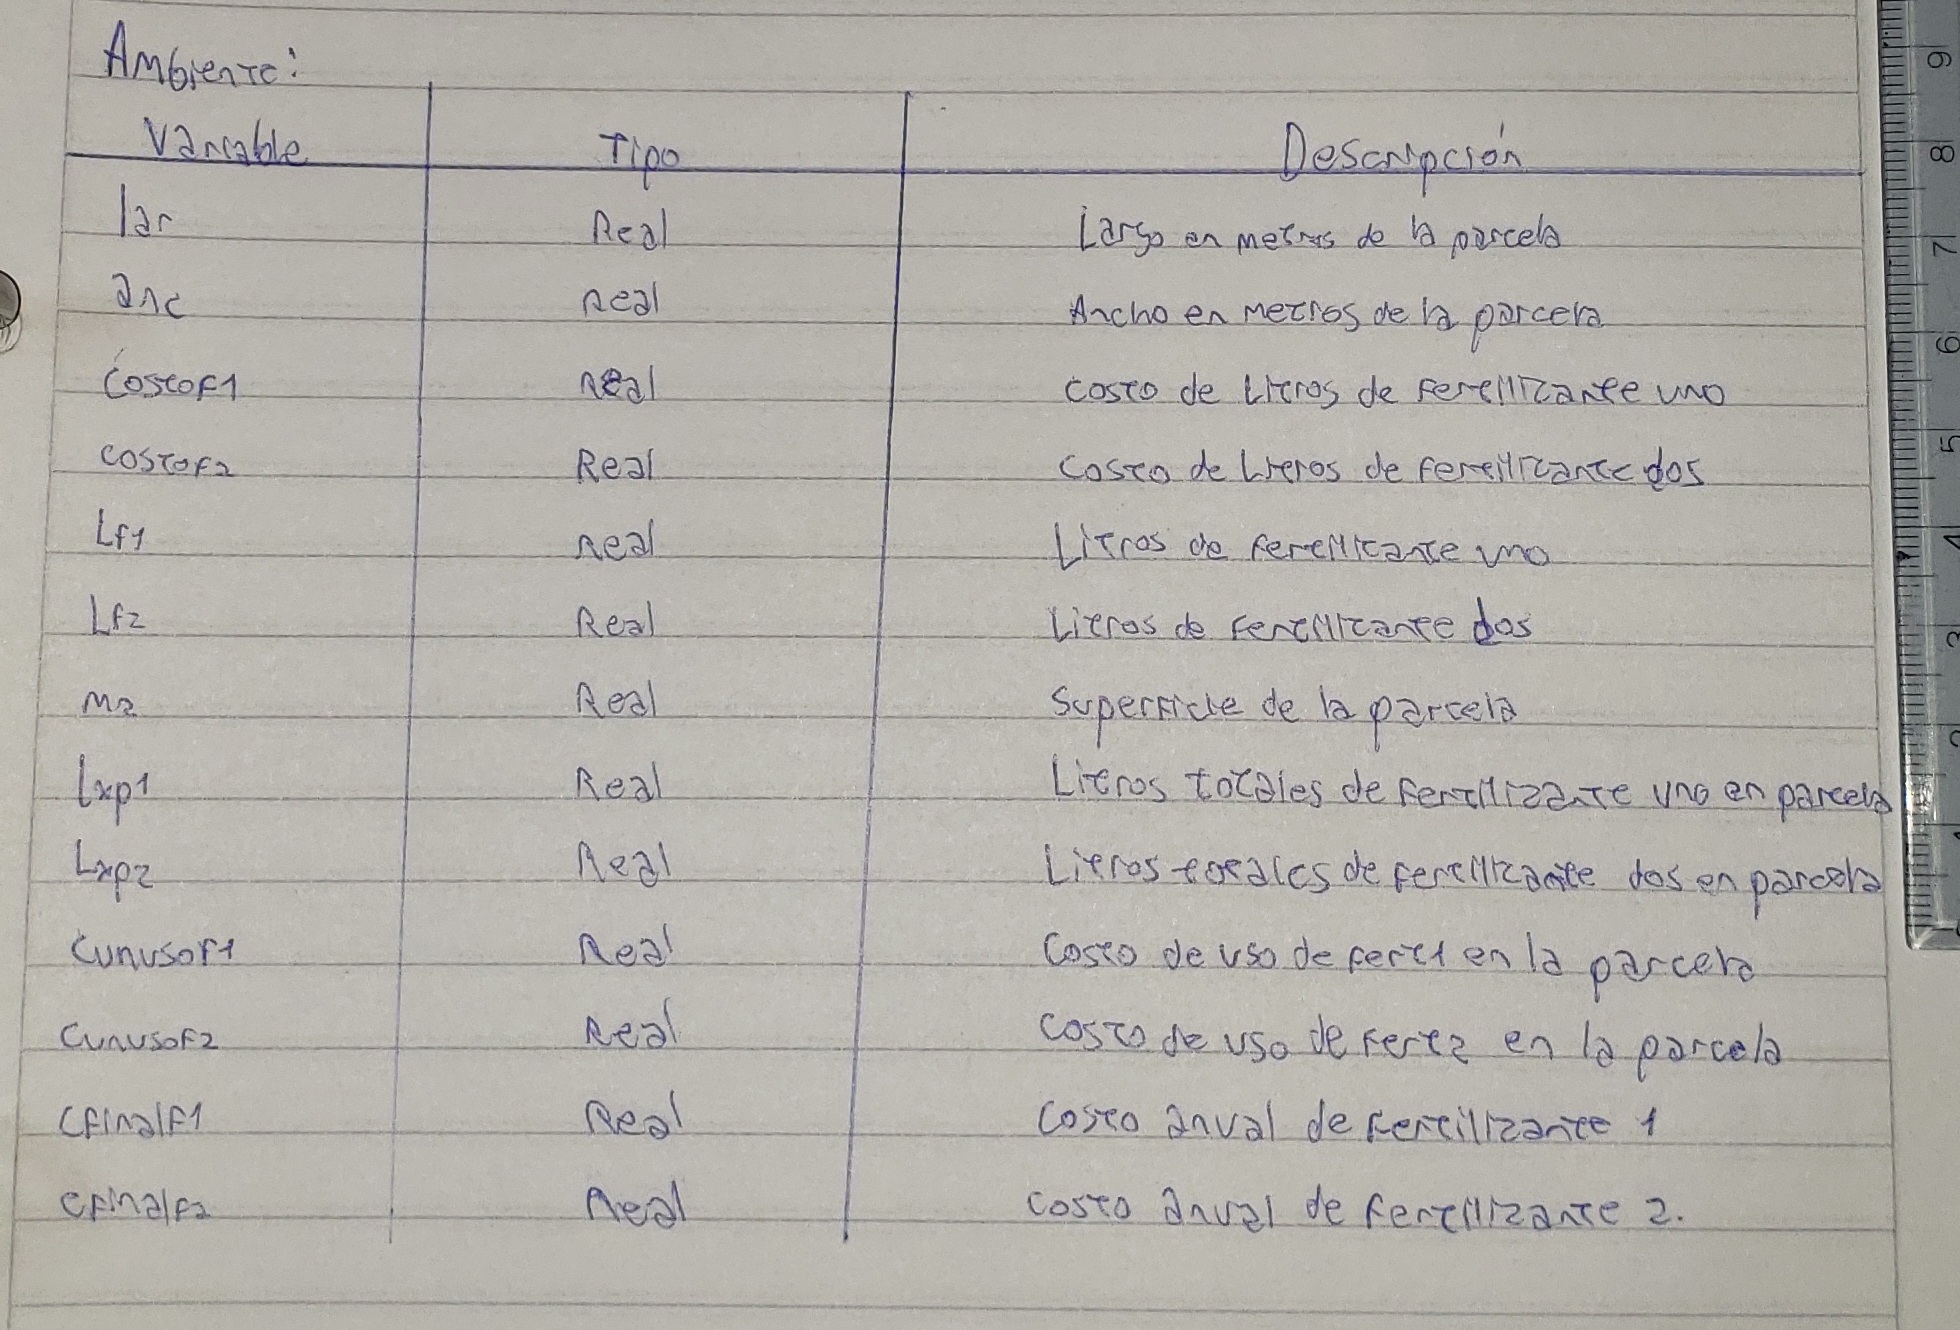 Ambiente:
Variable Tipo Descripción
lar Real Largo en metros de la parcela
anc Real Ancho en metros de la parcela
CostoF1 Real Costo de Litros de Fertilizante uno
COSTOF2 Real Costo de Litros de Fertilizante dos
Lf1 Real Litros de Fertilizante uno
Lf2 Real Litros de Fertilizante dos
M2 Real Superficie de la parcela
Lxp1 Real Litros totales de Fertilizante uno en parcela
Lxp2 Real Litros totales de Fertilizante dos en parcela
CunusoF1 Real Costo de uso de Fert1 en la parcela
CunusoF2 Real Costo de uso de Fert2 en la parcela
CFinalF1 Real Costo anual de Fertilizante 1
CFinalF2 Real Costo anual de Fertilizante 2.
9
8
7
6
5
4
3
2
1